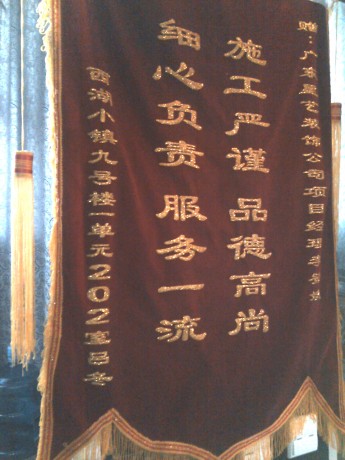 赠：广东星艺装饰公司项目经理李
施工严谨 品德高尚
细心负责 服务一流
西湖小镇九号楼一单元202室吕